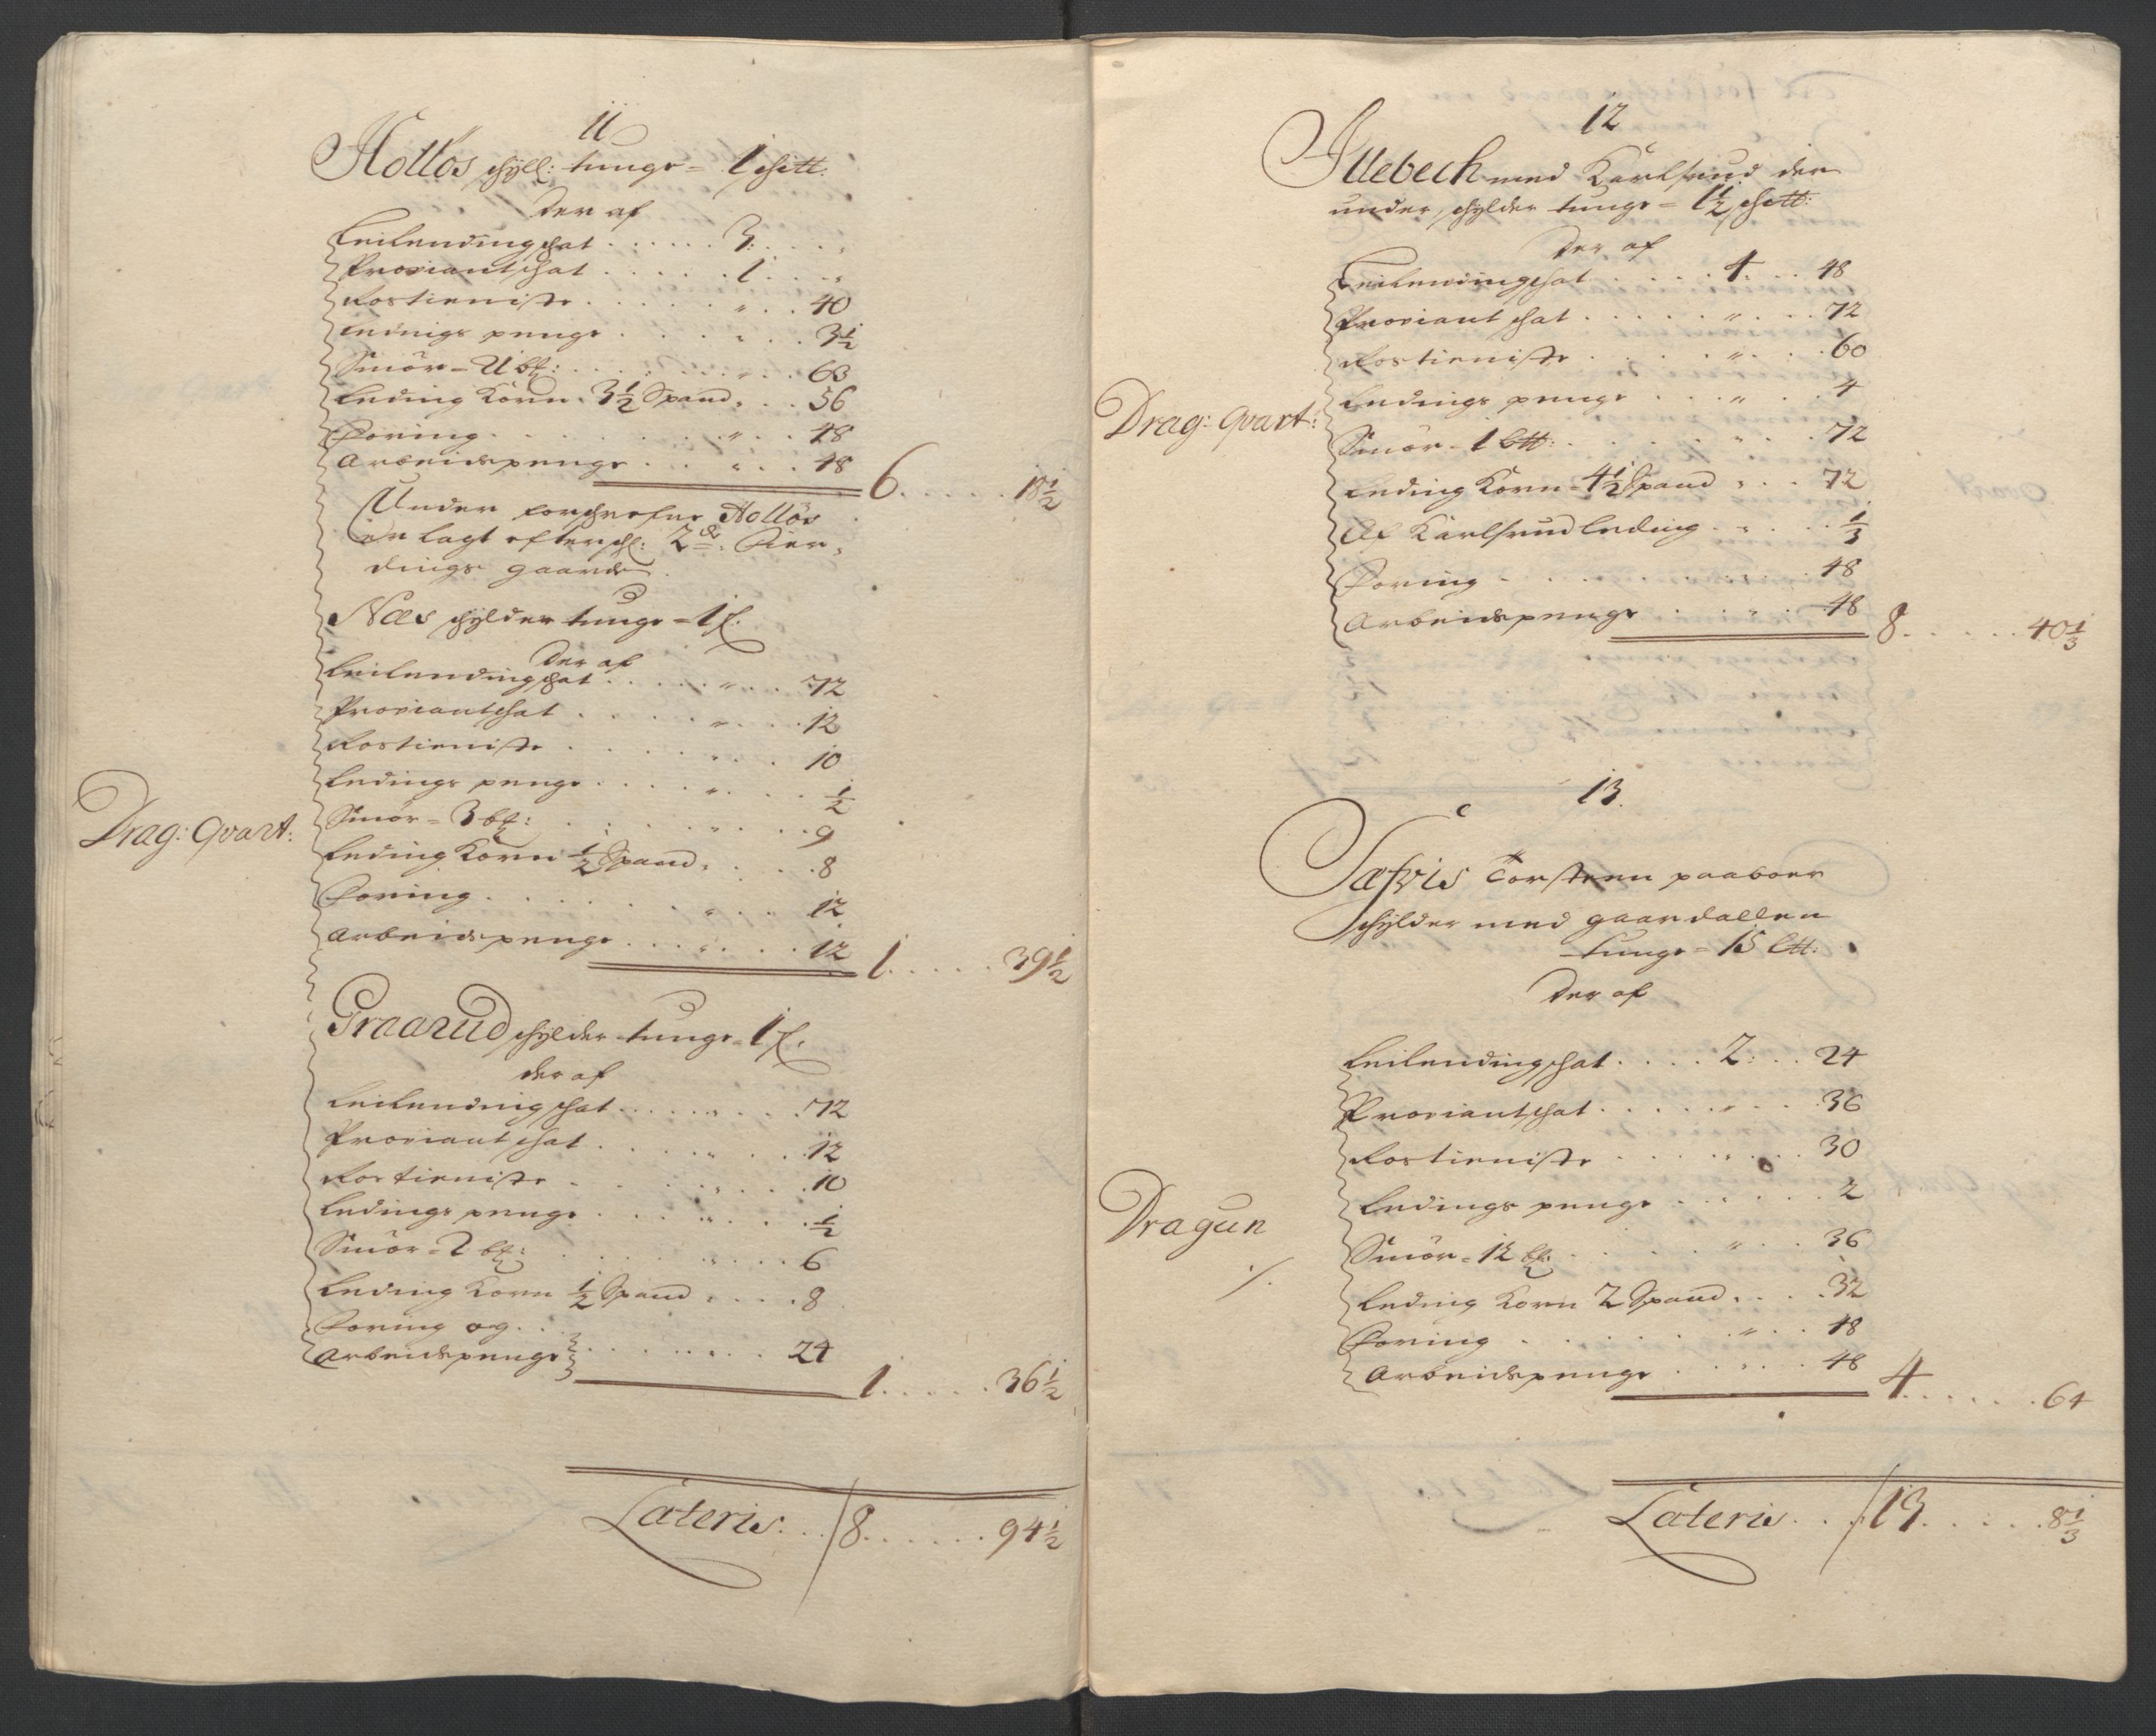 11
Hollos schyll: tunge = 1 schtt:
Der af
Leilendingschat . . . . . . 3: . . . "
Proviantschat . . . . . . 1 . . . "
Rostieniste . . . . . " . . 40
Ledings penge . . . . " . . 3½
Smör = 21 bs: . . . . . " . . 63
Leding Korn. 3½ Spand " . . 56
Foring . . . . . . . " . . 48
Arbeidspenge . . . " . . 48
6 . . . . . 18½
Under forschrefne Hollös
er lagt efterschl: 2de Fier„
dings gaarde
Næs schylder tunge = 1 f.
Der af
Leilendingschat . . . . " . . 72
Proviantschat . . . . . " . . . 12
Rostieniste . . . . . " . . 10
Ledings penge . . . . " . . . ½
Drag: Qvart:
Smör = 3 bs: . . . . . " . . . 9
Leding Korn ½ Spand " . . . 8
Foring . . . . . . . " . . 12
Arbeidspenge . . . " . . . 12
1 . . . . . 39½
Graarud schylder tunge = 1 f.
der af
Leilendingschat . . . . " . . . 72
Proviantschat . . . . " . . . 12
Rostieniste . . . . . " . . . 10
Ledings penge . . . . " . . . ½
Smör = 2 bs: . . . . . " . . . 6
Leding Korn ½ Spand . . . . 8
Foring og . .
Arbeidspenge . . . . " . . . 24
1 . . . . . 36½
Lateris . . . / 8 . . . . . . 94½
12
Illebech med Karlsrud der
under, schylder tunge = 1½ schtt:
Der af
Leilendingschat . . . . . 4 . . . 48
Proviant schat . . . . . " . . . 72
Rostieniste . . . . . " . . . 60
Ledings penge . . . " . . . 4
Drag: Qvart:
Smör = 1 btt: . . . . . " . . . 72
Leding Korn = 4½ Spand " . . . 72
Af Karlsrud leding . " . . . ⅓
Foring . . . . . . . . . . 48
Arbeidspenge . . . " . . . 48
8 . . . . . 40⅓
13.
Torsteen paaboer
schylder med gaardallen
tunge = 15 Ltt:
Der af
Leilendingschat . . . . 2: . . 24
Proviantschat . . . . . " . . . 36
Rostieniste . . . . . " . . . 30
Ledings penge . . . . " . . . 2
Dragun
Smör = 12 bs: . . . . . " . . . 36
Leding Korn 2 Spand " . . . 32
Foring . . . . . . . " . . . 48
Arbeidspenge . . . " . . . 48
4 . . . . . . 64
Lateris . . . / 13 . . . . . 8⅓